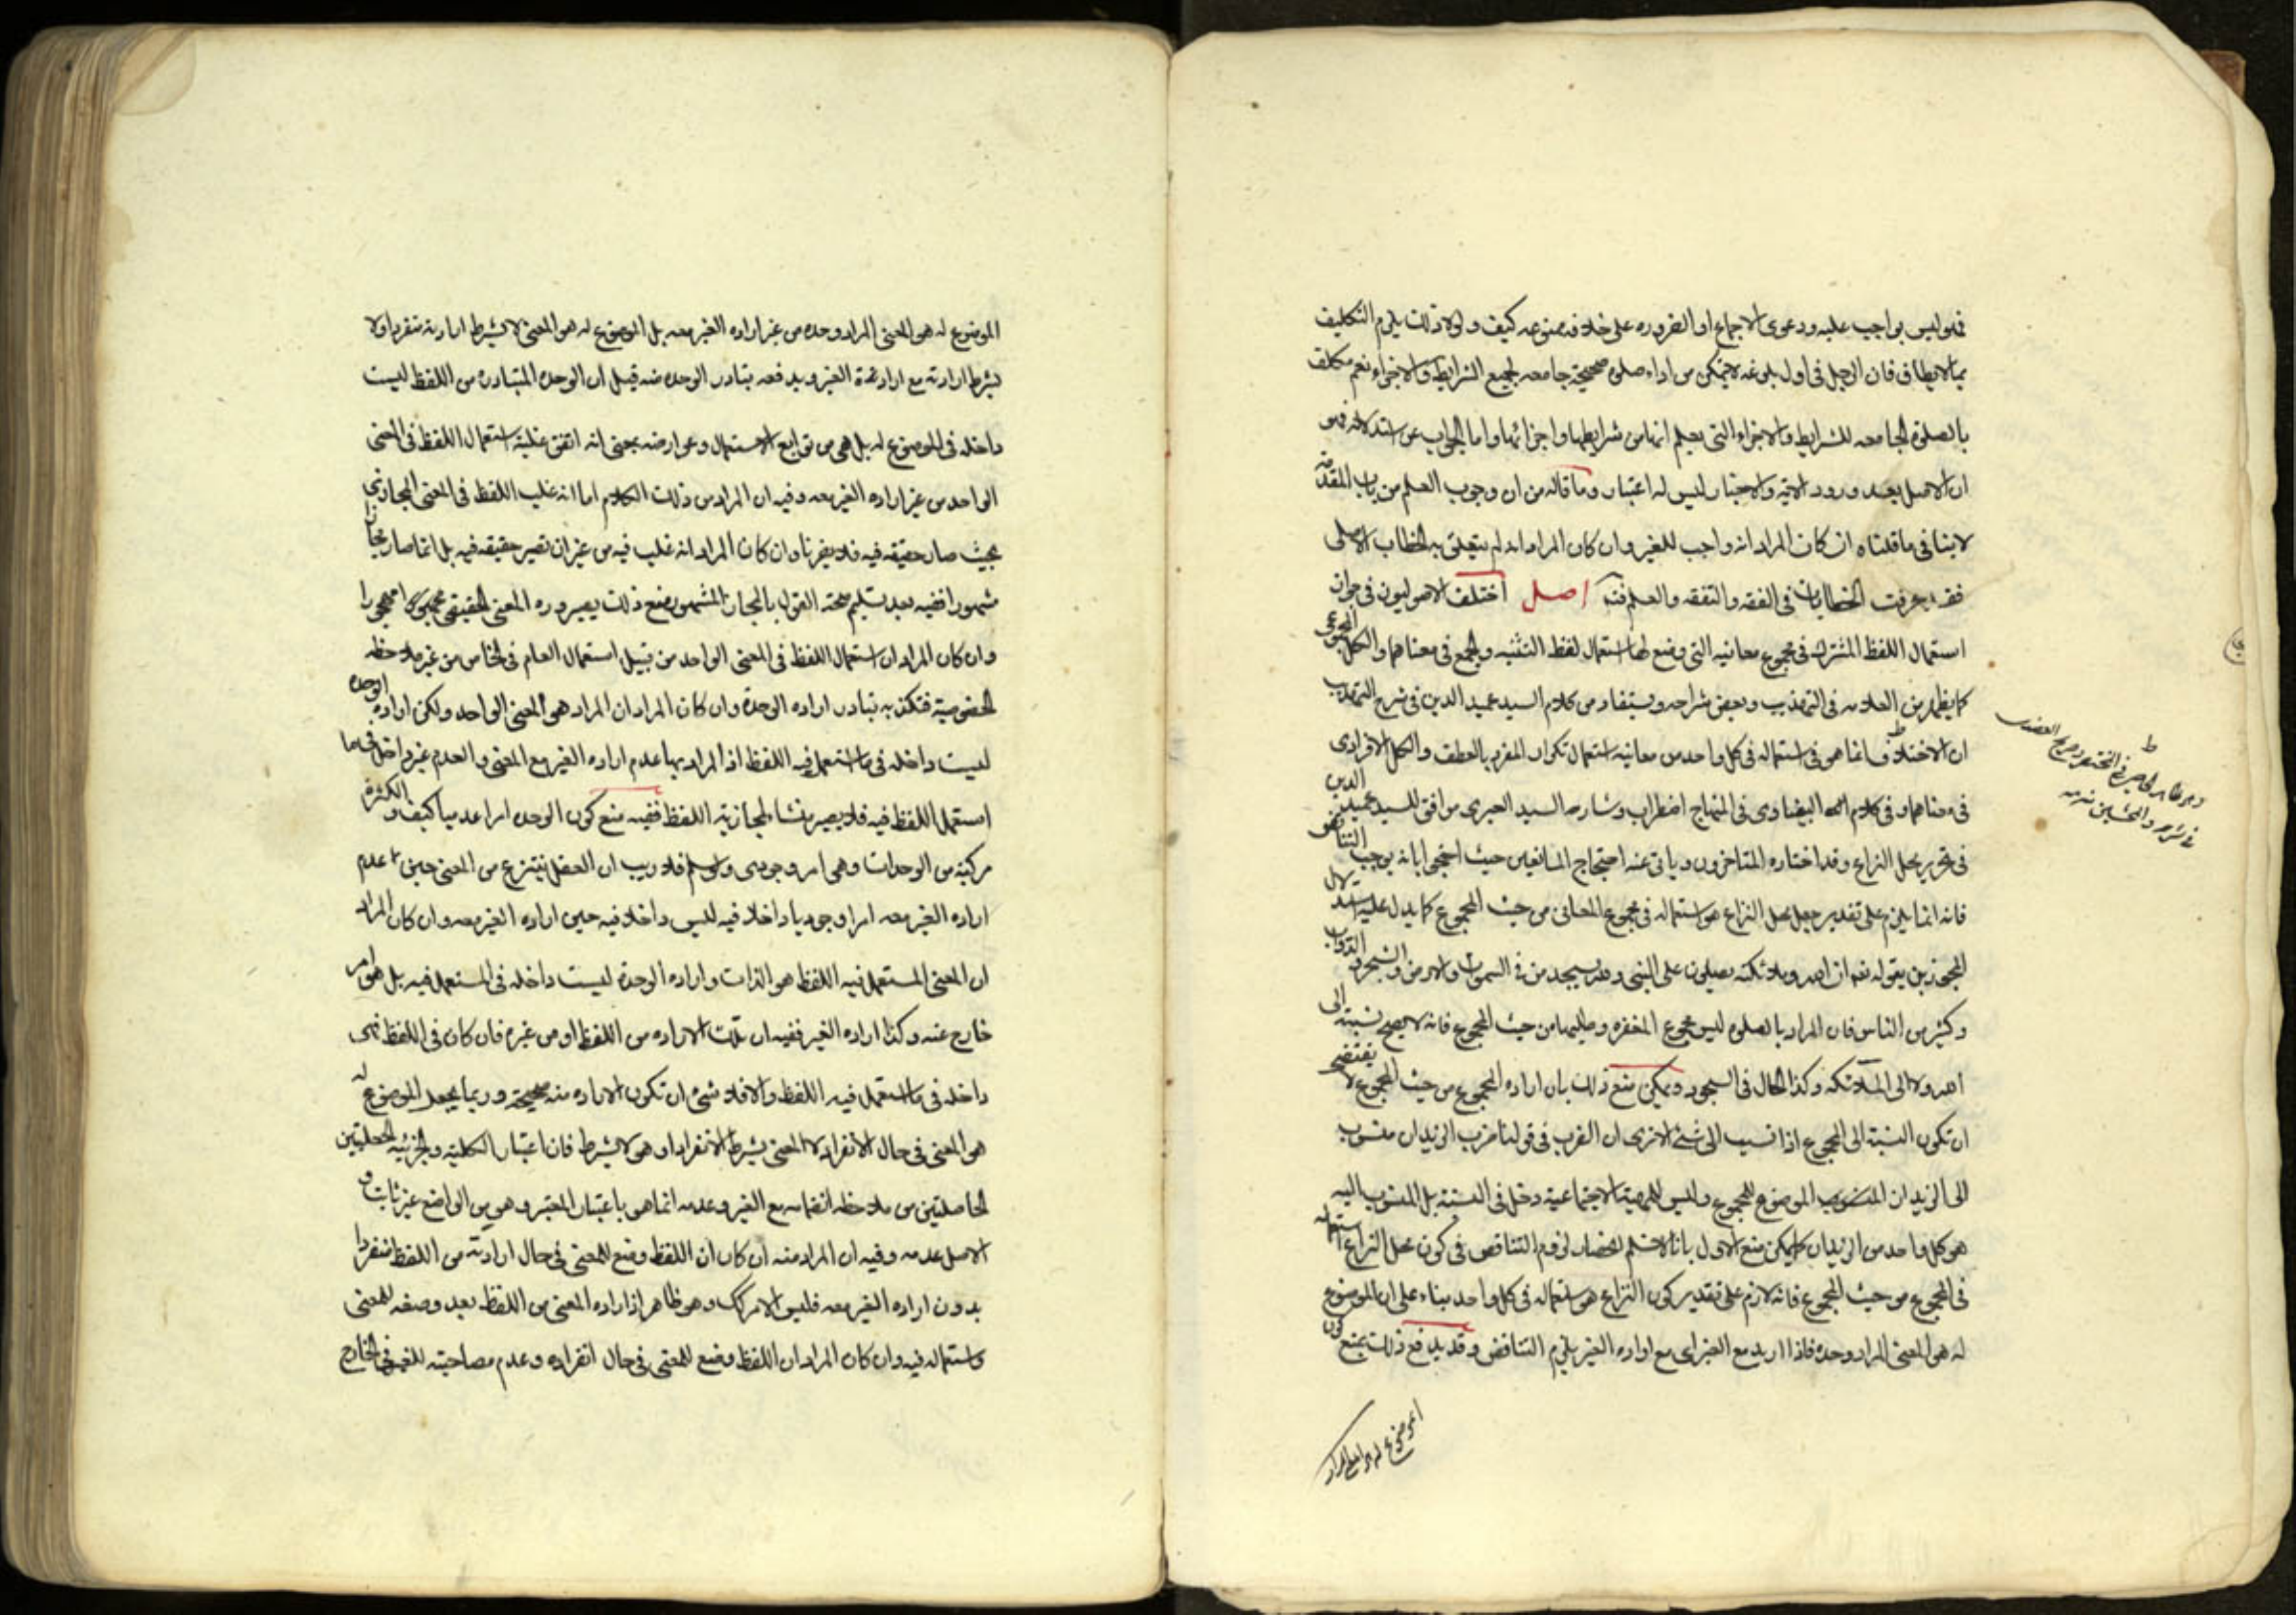 فهو ليس بواجب عليه ودعوى الاجماع او الضروره على خلافه ممنوعه كيف ولولا ذلك يلزم التكليف
بما لا يطاق فان الرجل فى اول بلوغه لا يتمكن من اداء صلوه صحيحة جامعه لجميع الشرايط والاجزاء نعم مكلف
بالصلوة الجامعه للشرايط والاجزاء التى يعلم انها من شرايطها واجزائها واما الجواب عن استدلاله فهو
ان الاصل بعد ورود الاية والاخبار ليس له اعتبار وما قاله من ان وجوب العلم من باب المقدمة
لا ينافى ما قلناه ان كان المراد انه واجب للغير وان كان المراد انه لم يتعلق به الخطاب الاصلى
فقد عرفت الخطابات فى الفقه والتفقه والعلم فتـ اصل اختلف الاصوليون فى جواز
استعمال اللفظ المشترك فى مجموع معانيه التى وضع لها استعمال لفظ التثنيه والجمع فى معناهما والكل المجموعى
كما يظهر من العلامه فى التهذيب وبعض شراحه ويستفاد من كلام السيد عميد الدين فى شرح التهذيب
ان الاختلاف انما هو فى استعماله فى كل واحد من معانيه استعمال تكرار المفرد بالعطف والكل الافرادى
فى معناهما وفى كلام البيضاوى فى المنهاج اضطراب وشارحه السيد العبرى موافق للسيد عميد الدين
فى تحرير محل النزاع وقد اختاره المتاخرون ويابى عنه احتجاج المانعين حيث احتجوا بانه يوجب التناقض
فانه انما يلزم على تقدير جعل محل النزاع هو استعماله فى مجموع المعانى من حيث المجموع كما يدل عليه استدلال
المجوزين بقوله تعه ان الله وملائكته يصلون على النبى ولله يسجد من فى السموات والارض والشجر والدواب
وكثير من الناس فان المراد بالصلوه ليس مجموع المغفره وطلبها من حيث المجموع فانه لا يصح نسبته الى
الله ولا الى الملائكه وكذا الحال فى السجود ويمكن منع ذلك بان اراده المجموع من حيث المجموع لا يقتضى
ان تكون النسبة الى المجموع اذا نسب الى شئ الا ترى ان الضرب فى قولنا ضرب الزيدان منسوب
الى الزيدان الموضوع للمجموع وليس للهيئة الاجتماعية دخل فى النسبة بل المنسوب اليه
هو كل واحد من الزيدان كما يمكن منع الاول بانا لا نسلم انحصار لزوم التناقض فى كون محل النزاع استعماله
فى المجموع من حيث المجموع فانه لازم على تقدير كون النزاع هو استعماله فى كل واحد بناء على ان الموضوع
له هو المعنى المراد وحده فاذا اريد مع الغير اى مع اراده الغير يلزم التناقض وقد يدفع ذلك بمنع كون
الموضوع له هو المعنى المراد
الموضوع له هو المعنى المراد وحده من غير اراده الغير معه بل الموضوع له هو المعنى لا بشرط ارادته منفردا ولا
بشرط ارادته مع ارادة الغير ويدفعه تبادر الوحده منه قيل ان الوحده المتبادره من اللفظ ليست
داخله فى الموضوع له بل هى من توابع الاستعمال وعوارضه بمعنى انه اتفق غلبة استعمال اللفظ فى المعنى
الواحد من غير اراده الغير معه وفيه ان المراد من ذلك الكلام اما انه غلب اللفظ فى المعنى المجازى
بحيث صار حقيقه فيه فلا يضرنا وان كان المراد انه غلب فيه من غير ان تصير حقيقه فيه بل انما صار مجازا
مشهورا ففيه بعد تسليم صحته القول بالمجاز المشهور منع ذلك بصيروره المعنى الحقيقى مهجورا
وان كان المراد ان استعمال اللفظ فى المعنى الواحد من قبيل استعمال العام فى الخاص من غير ملاحظه
الخصوصية فتكذبه تبادر اراده الوحدة وان كان المراد ان المراد هو المعنى الواحد ولكن اراده الوحده
ليست داخله فى ما استعمل فيه اللفظ اذ المراد بها عدم اراده الغير مع المعنى والعدم غير داخل فى ما
استعمل اللفظ فيه فلا يصير منشا لمجازية اللفظ ففيه منع كون الوحده امرا عدميا كيف والكثرة
مركبة من الوحدات وهى امر وجودى ولو سلم فلا ريب ان العقل ينتزع من المعنى حين عدم
اراده الغير معه امرا وجوديا داخلا فيه ليس داخلا فيه حين اراده الغير معه وان كان المراد
ان المعنى المستعمل فيه اللفظ هو الذات واراده الوحدة ليست داخله فى المستعمل فيه بل هو امر
خارج عنه وكذا اراده الغير ففيه ان تلك الاراده من اللفظ او من غيره فان كان فى اللفظ فهى
داخله فى ما استعمل فيه اللفظ والا فلا شئ ان تكون الاراده منه صحيحة وربما يجعل الموضوع له
هو المعنى فى حال الانفراد لا المعنى بشرط الانفراد او هو لا بشرط فان اعتبار الكلية والجزئيه الجعليتين
الحاصلتين من ملاحظه انضمامه مع الغير وعدمه انما هو باعتبار المعتبر وهو من الواضع غير ثابت و
الاصل عدمه وفيه ان المراد منه ان كان ان اللفظ وضع للمعنى فى حال ارادته من اللفظ منفردا
بدون اراده الغير معه فليس الامر كك وهو ظاهر اذ اراده المعنى من اللفظ بعد وضعه للمعنى
واستعماله فيه وان كان المراد ان اللفظ وضع للمعنى فى حال انفراده وعدم مصاحبته للغير فى الخارج